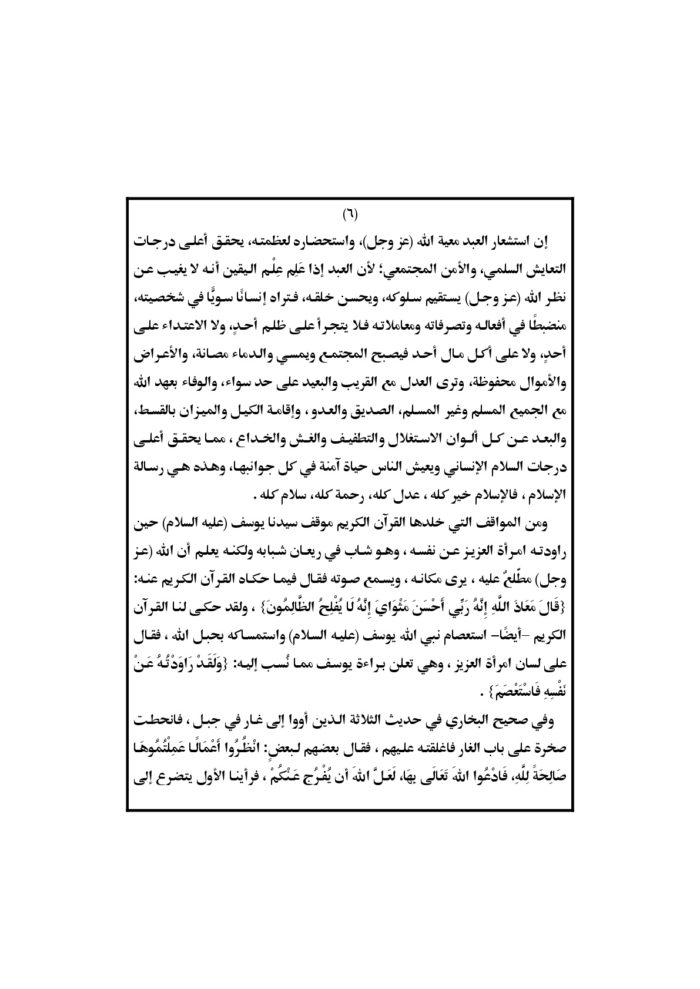 (٦)
إن استشعار العبد معية الله (عز وجل)، واستحضاره لعظمته، يحقق أعلى درجات
التعايش السلمي، والأمن المجتمعي؛ لأن العبد إذا عَلِم عِلْم اليقين أنه لا يغيب عن
نظر الله (عز وجل) يستقيم سلوكه، ويحسن خلقه، فتراه إنسانًا سويًّا في شخصيته،
منضبطًا في أفعاله وتصرفاته ومعاملاته فلا يتجرأ على ظلم أحدٍ، ولا الاعتداء على
أحدٍ، ولا على أكل مال أحد فيصبح المجتمع ويمسي والدماء مصانة، والأعراض
والأموال محفوظة، وترى العدل مع القريب والبعيد على حد سواء، والوفاء بعهد الله
مع الجميع المسلم وغير المسلم، الصديق والعدو، وإقامة الكيل والميزان بالقسط،
والبعد عن كل ألوان الاستغلال والتطفيف والغش والخداع ، مما يحقق أعلى
درجات السلام الإنساني ويعيش الناس حياة آمنة في كل جوانبها، وهذه هي رسالة
الإسلام ، فالإسلام خير كله ، عدل كله، رحمة كله، سلام كله .
ومن المواقف التي خلدها القرآن الكريم موقف سيدنا يوسف (عليه السلام) حين
راودته امرأة العزيز عن نفسه ، وهو شاب في ريعان شبابه ولكنه يعلم أن الله (عز
وجل) مطّلعٌ عليه ، يرى مكانه ، ويسمع صوته فقال فيما حكاه القرآن الكريم عنه:
{قَالَ مَعَاذَ اللَّهِ إِنَّهُ رَبِّي أَحْسَنَ مَثْوَايَ إِنَّهُ لَا يُفْلِحُ الظَّالِمُونَ} ، ولقد حكى لنا القرآن
الكريم –أيضًا– استعصام نبي الله يوسف (عليه السلام) واستمساكه بحبل الله ، فقال
على لسان امرأة العزيز ، وهي تعلن براءة يوسف مما نُسب إليه: {وَلَقَدْ رَاوَدْتُهُ عَنْ
نَفْسِهِ فَاسْتَعْصَمَ} .
وفي صحيح البخاري في حديث الثلاثة الذين أووا إلى غار في جبل ، فانحطت
صخرة على باب الغار فاغلقته عليهم ، فقال بعضهم لبعضٍ: انْظُرُوا أَعْمَالًا عَمِلْتُمُوهَا
صَالِحَةً لِلَّهِ، فَادْعُوا اللهَ تَعَالَى بِهَا، لَعَلَّ اللهَ أن يُفْرُج عَنْكُمْ ، فرأينا الأول يتضرع إلى